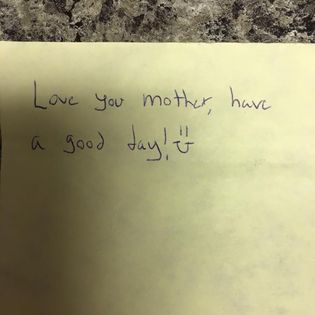 Love you mother, have
a good day! ü